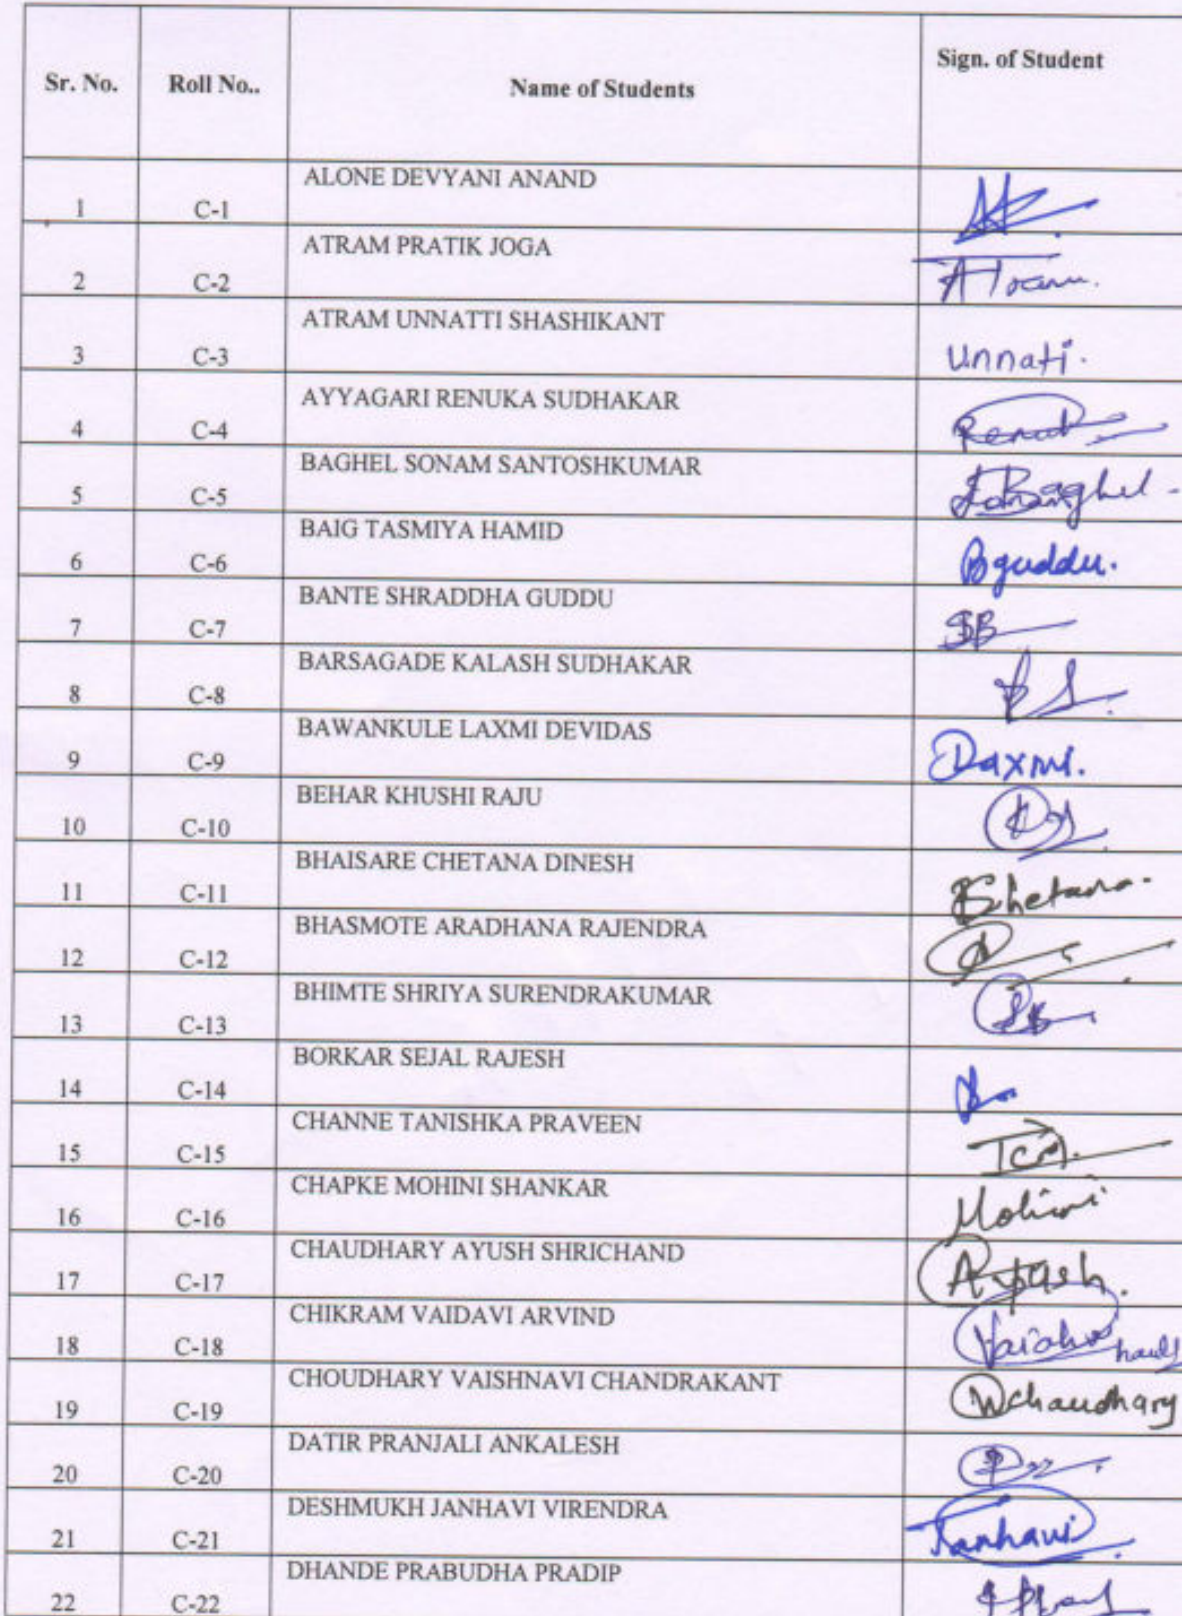 Sr. No. Roll No.. Name of Students Sign. of Student
1 C-1 ALONE DEVYANI ANAND
2 C-2 ATRAM PRATIK JOGA Atram.
3 C-3 ATRAM UNNATTI SHASHIKANT Unnati.
4 C-4 AYYAGARI RENUKA SUDHAKAR
5 C-5 BAGHEL SONAM SANTOSHKUMAR Baghel
6 C-6 BAIG TASMIYA HAMID Bguddu.
7 C-7 BANTE SHRADDHA GUDDU SB
8 C-8 BARSAGADE KALASH SUDHAKAR
9 C-9 BAWANKULE LAXMI DEVIDAS Laxmi.
10 C-10 BEHAR KHUSHI RAJU
11 C-11 BHAISARE CHETANA DINESH Chetana.
12 C-12 BHASMOTE ARADHANA RAJENDRA
13 C-13 BHIMTE SHRIYA SURENDRAKUMAR SB
14 C-14 BORKAR SEJAL RAJESH
15 C-15 CHANNE TANISHKA PRAVEEN
16 C-16 CHAPKE MOHINI SHANKAR Mohini
17 C-17 CHAUDHARY AYUSH SHRICHAND Ayush.
18 C-18 CHIKRAM VAIDAVI ARVIND
19 C-19 CHOUDHARY VAISHNAVI CHANDRAKANT Vchaudhary
20 C-20 DATIR PRANJALI ANKALESH
21 C-21 DESHMUKH JANHAVI VIRENDRA Janhavi
22 C-22 DHANDE PRABUDHA PRADIP